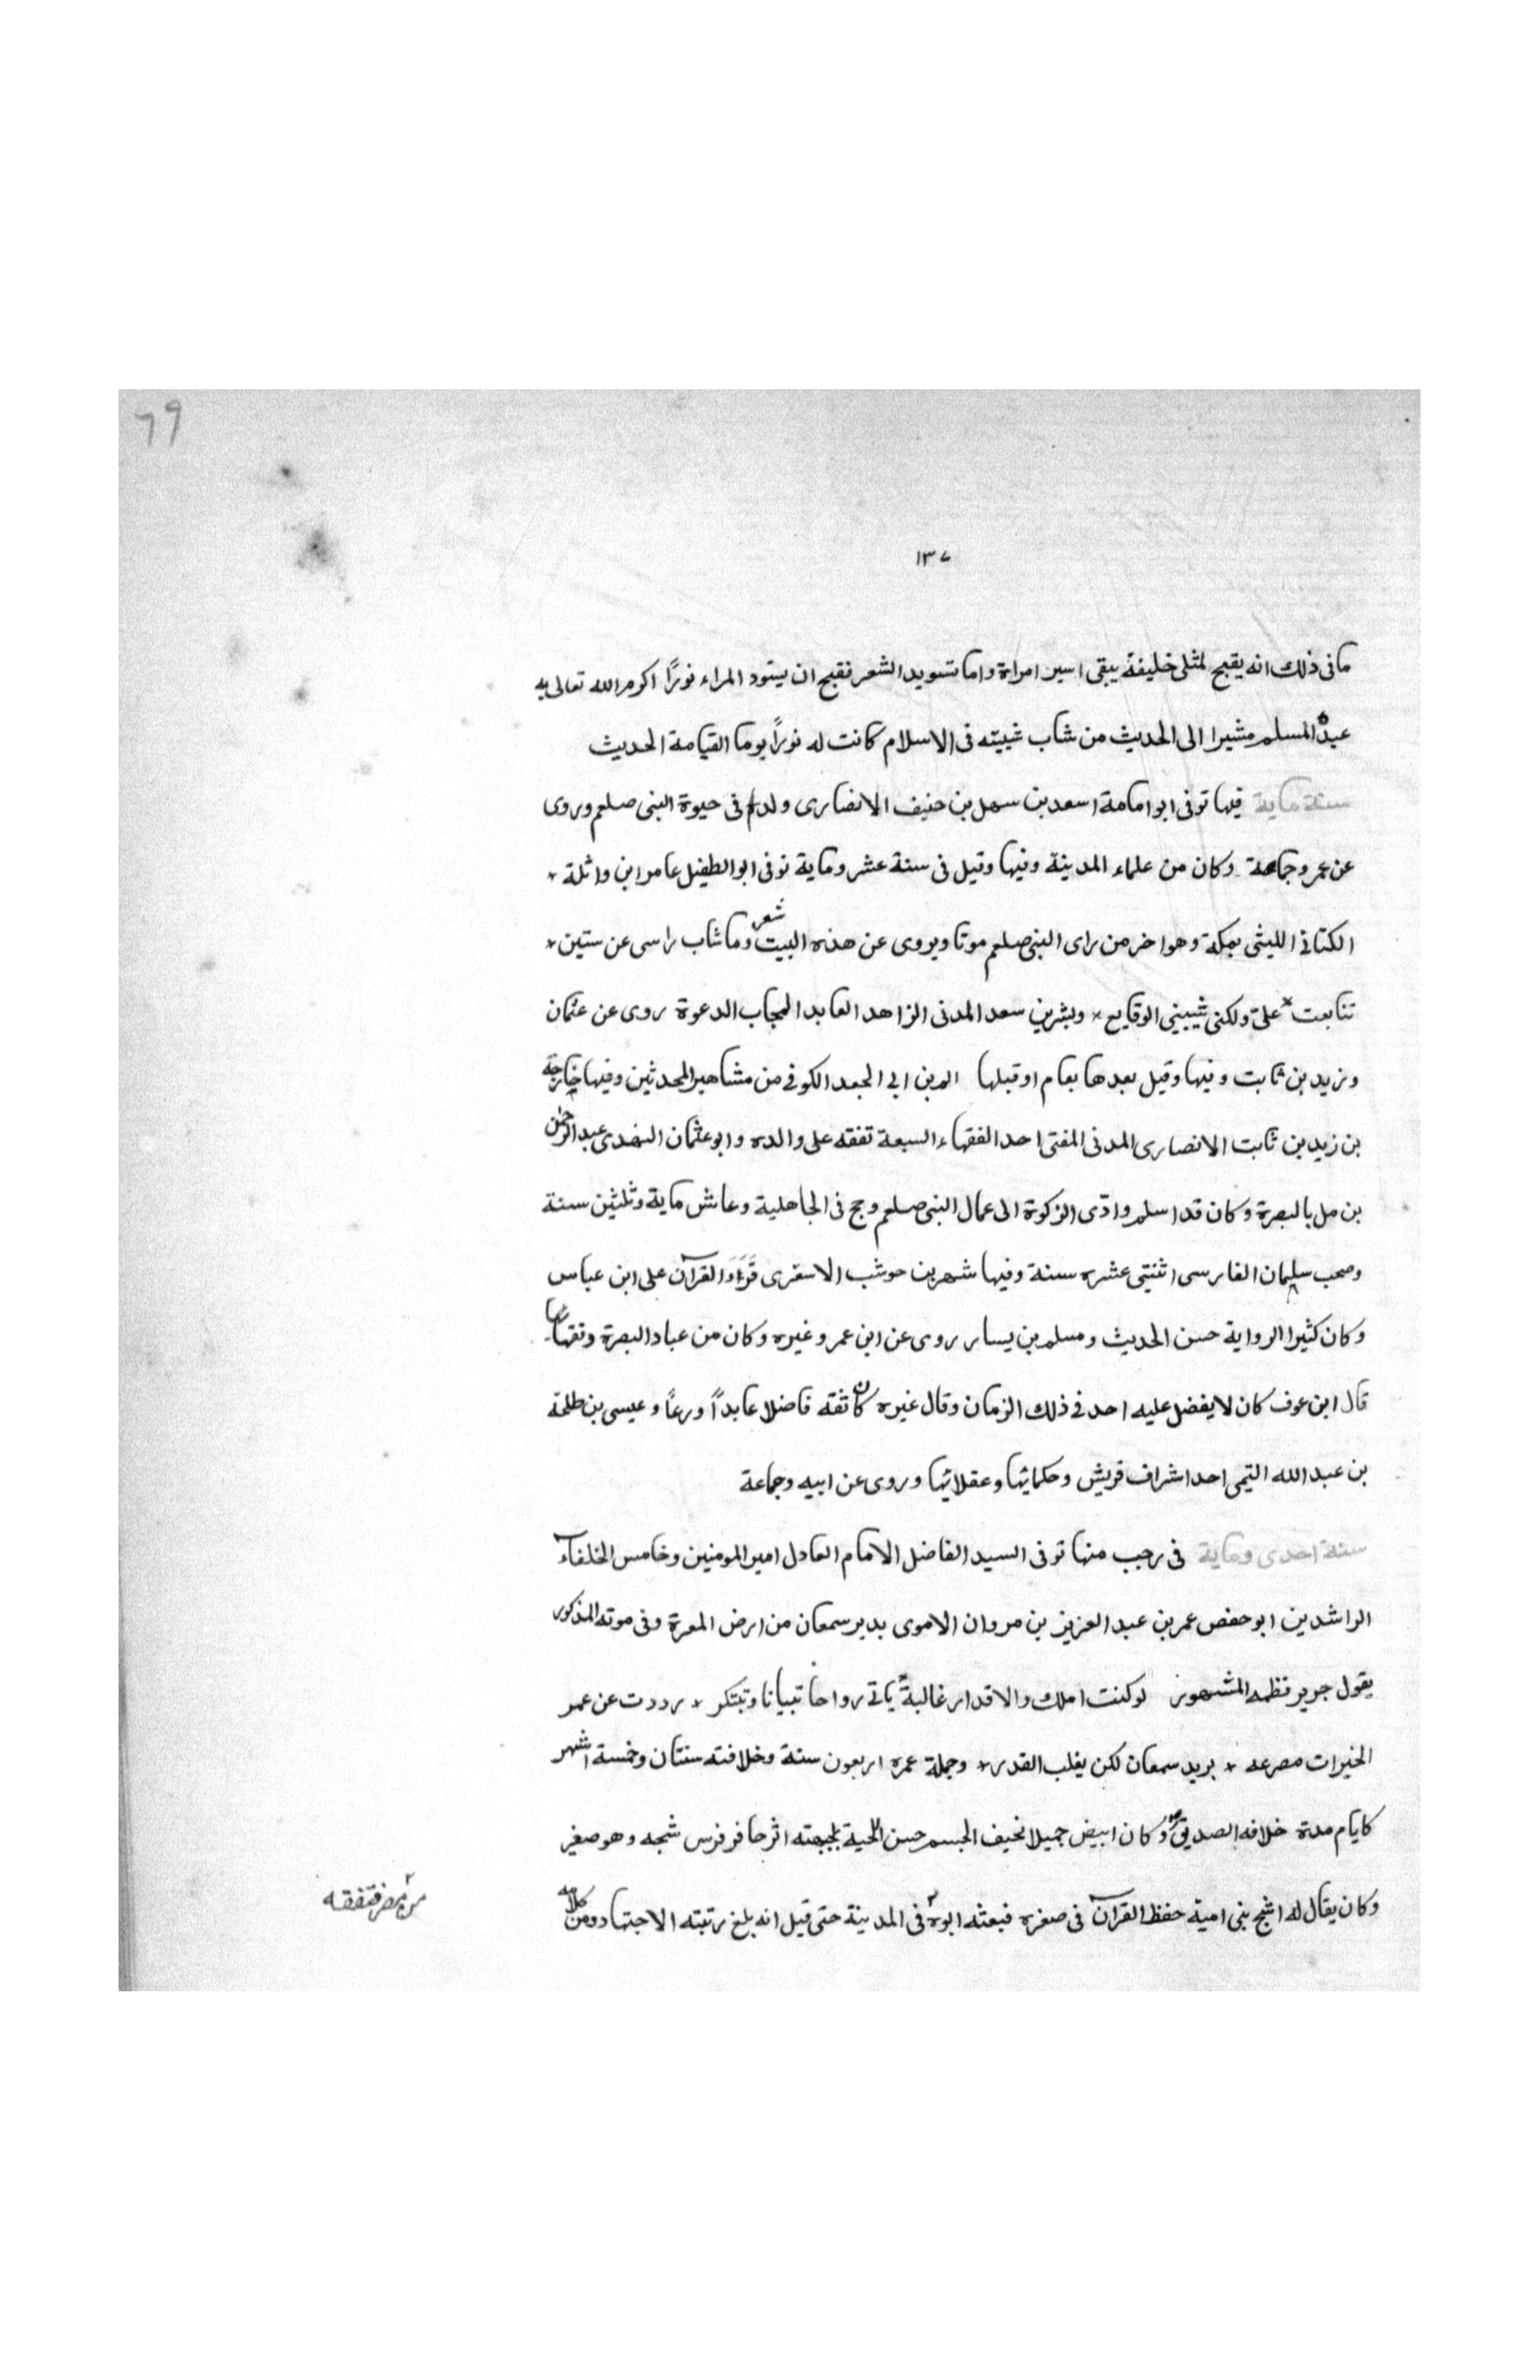 ٦٩
١٣٧
ما فى ذلك انه يقبح لمثلى خليفة يبقى اسير امراة واما تسويد الشعر فقبح ان يسّود المراء نورًا اكرم الله تعالى به
عبده المسلم مشيرا الى الحديث من شاب شيبته فى الاسلام كانت له نورًا يوما القيامة الحديث
سنة ماية فيها توفى ابو امامة اسعد بن سهل بن حنيف الانصارى ولد فى حيوة النبى صلعم وروى
عن عمر وجماعة وكان من علماء المدينة وفيها وقيل فى سنة عشر وماية توفى ابو الطفيل عامر ابن واثلة
الكنانى الليثى بمكة وهو اخر من راى النبى صلعم موتا ويروى عن هذه البيت شعر وما شاب راسى عن ستين
تتابعت علىّ ولكنى شيبينى الوقايع وبشر بن سعد المدنى الزاهد العابد المجاب الدعوة روى عن عثمان
وزيد بن ثابت وفيها وقيل بعدها بعام او قبلها الم بن ابى الجعد الكوفى من مشاهير المحدثين وفيها خارجة
بن زيد بن ثابت الانصارى المدنى المفتى احد الفقهاء السبعة تفقه على والده وابو عثمان النهدى عبد الرحمن
بن مل بالبصرة وكان قد اسلم وادّى الزكوة الى عمال النبى صلعم وحج فى الجاهلية وعاش ماية وثلثين سنة
وصحب سلمان الفارسى اثنتى عشره سنة وفيها شهر بن حوشب الاسغرى القرآن على ابن عباس
وكان كثيرا الرواية حسن الحديث ومسلم بن يسار روى عن ابن عمر وغيره وكان من عباد البصرة وفقهائها
قال ابن عوف كان لا يفضل عليه احد فى ذلك الزمان وقال غيره كان ثقه فاضلا عابداً ورعاً وعيسى بن طلحة
بن عبد الله التيمى احد اشراف قريش وحكمائها وعقلائها وروى عن ابيه وجماعة
سنة احدى وماية فى رجب منها توفى السيد الفاضل الامام العادل امير المومنين وخامس الخلفآء
الراشدين ابو حفص عمر بن عبد العزيز بن مروان الاموى بدير سمعان من ارض المعرة وفى موته المذكور
يقول جرير نظمه المشهور لو كنت املك والاقدار غالبةً ياتى رواحا تبيانا وتبتكر رددت عن عمر
الخيرات مصرعه بريد سمعان لكن يغلب القدر وجملة عمره اربعون سنة وخلافته سنتان وخمسة اشهر
كايام مدة خلافه الصديق وكان ابيض جميلا نحيف الجسم حسن اللحية بجبهته اثر حافر فرس شجه وهو صغير
وكان يقال له اشج بنى امية حفظ القرآن فى صغره فبعثه ابوه فى المدينة حتى قيل انه بلغ رتبته الاجتهاد ومن كلامه
من مصر فتفقه